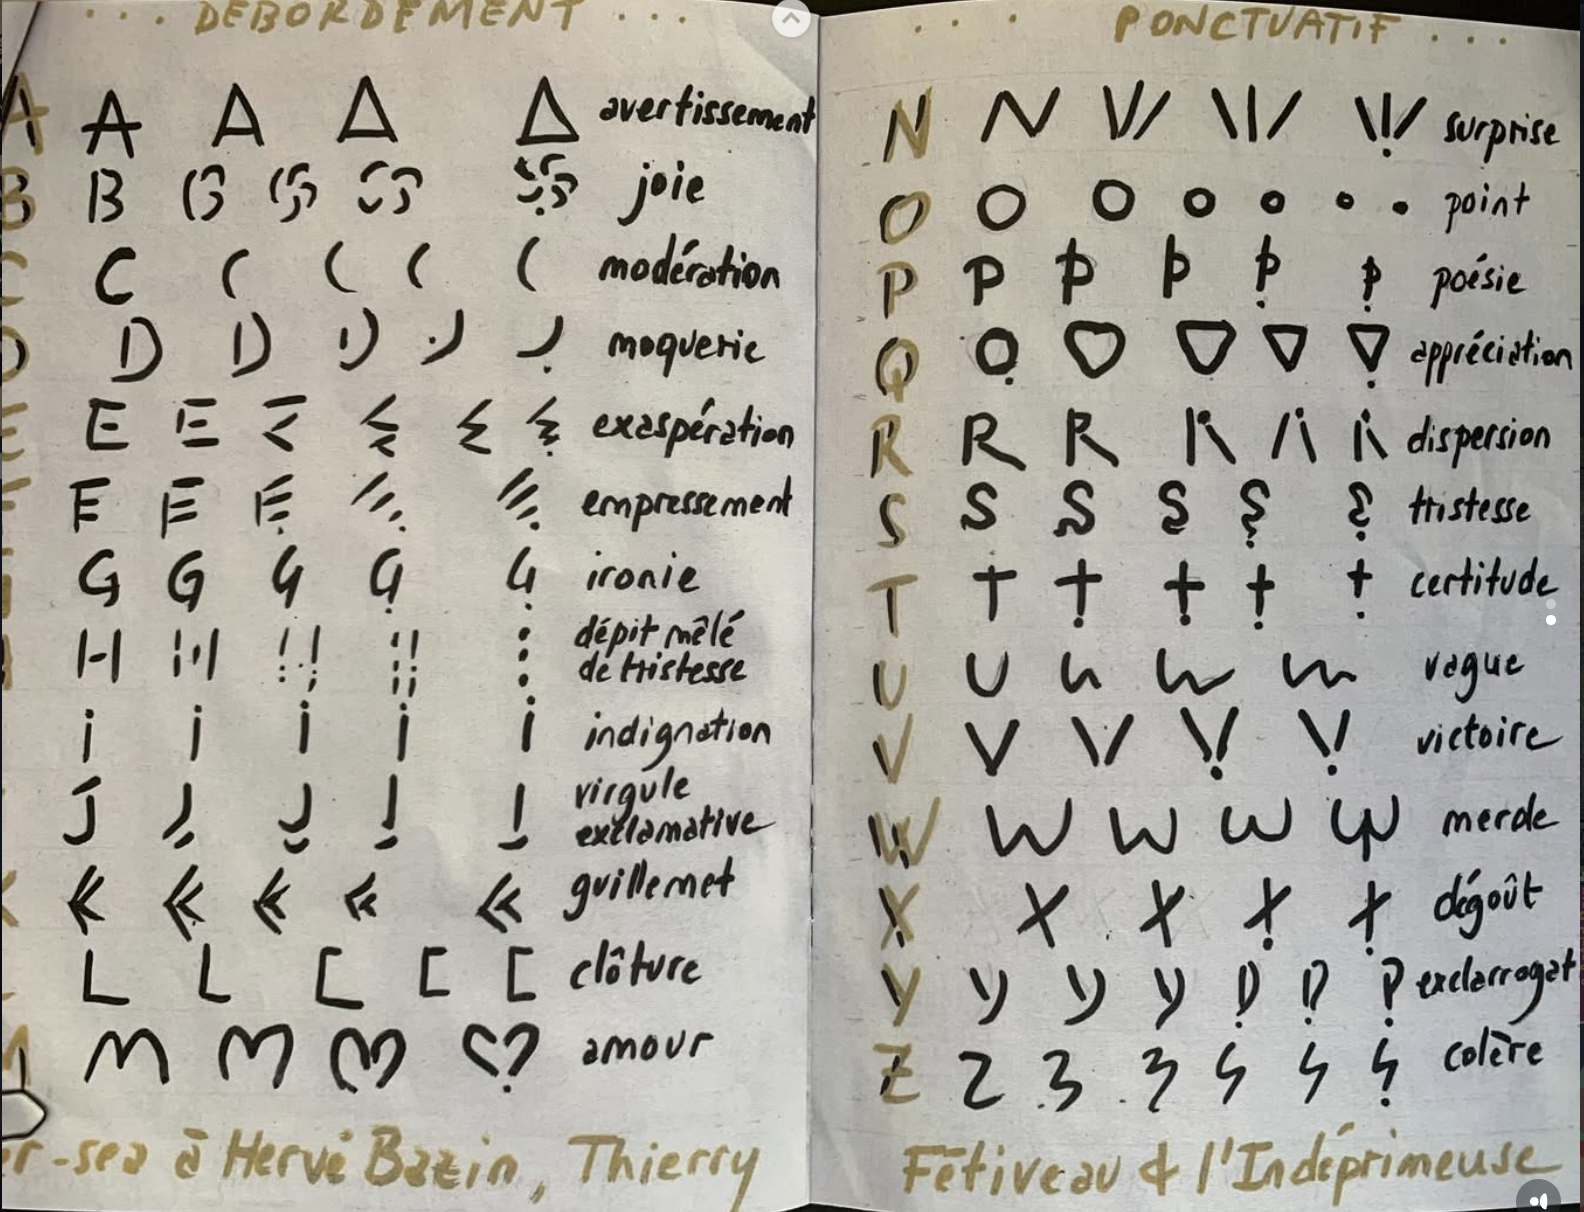 ... DÉBORDEMENT ...
A A A Δ Δ avertissement
B B joie
C C ( ( ( modération
D D moquerie
E E exaspération
F E empressement
G G ironie
H dépit mêlé
de tristesse
i i i i i indignation
J virgule
exclamative
K guillemet
L L [ [ [ clôture
M M amour
er-sea à Hervé Bazin, Thierry
... PONCTUATIF ...
N N surprise
O O O o o o • point
P P poésie
Q appréciation
R R R dispersion
S S tristesse
T T certitude
U U vague
V V victoire
W W W merde
X X X dégoût
Y y exclarrogat
Z Z colère
Fêtiveau & l'Indéprimeuse